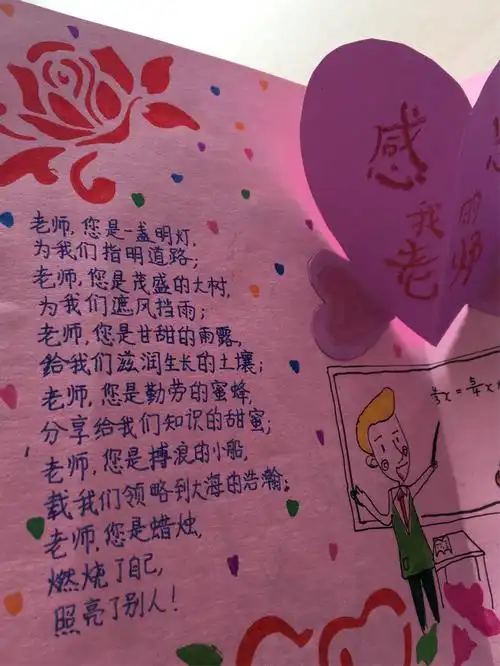 感 恩
我 的
老 师
老师,您是一盏明灯,
为我们指明道路;
老师,您是茂盛的大树,
为我们遮风挡雨;
老师,您是甘甜的雨露,
给我们滋润生长的土壤;
老师,您是勤劳的蜜蜂,
分享给我们知识的甜蜜;
老师,您是搏浪的小船,
载我们领略到大海的浩瀚;
老师,您是蜡烛,
燃烧了自己,
照亮了别人!